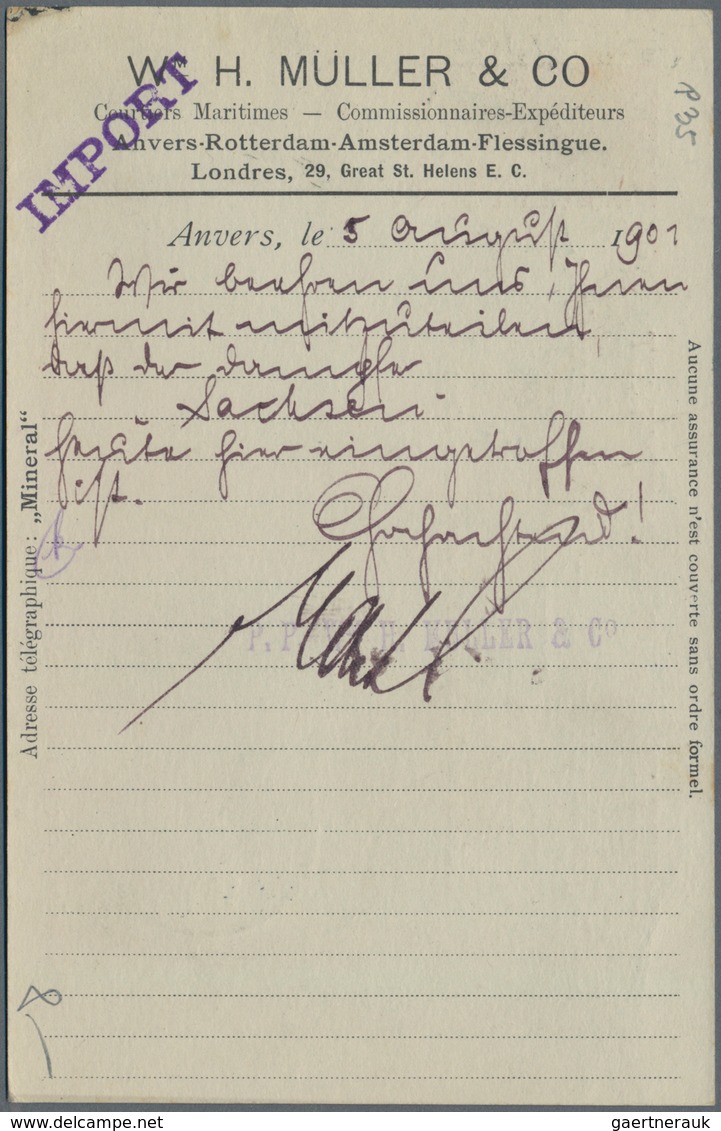 Wm H. MÜLLER & CO
IMPORT
Courtiers Maritimes — Commissionnaires-Expéditeurs
Anvers-Rotterdam-Amsterdam-Flessingue.
Londres, 29, Great St. Helens E. C.
P 35
Anvers, le 5 August 1901
Wir beehren uns, Ihnen
hiermit mitzuteilen,
daß der Dampfer
Sachsen
heute hier eingetroffen
ist.
Hochachtend!
P. P. W. H. MULLER & Co
Adresse télégraphique: „Mineral"
Aucune assurance n'est couverte sans ordre formel.
8
gaertnerauk